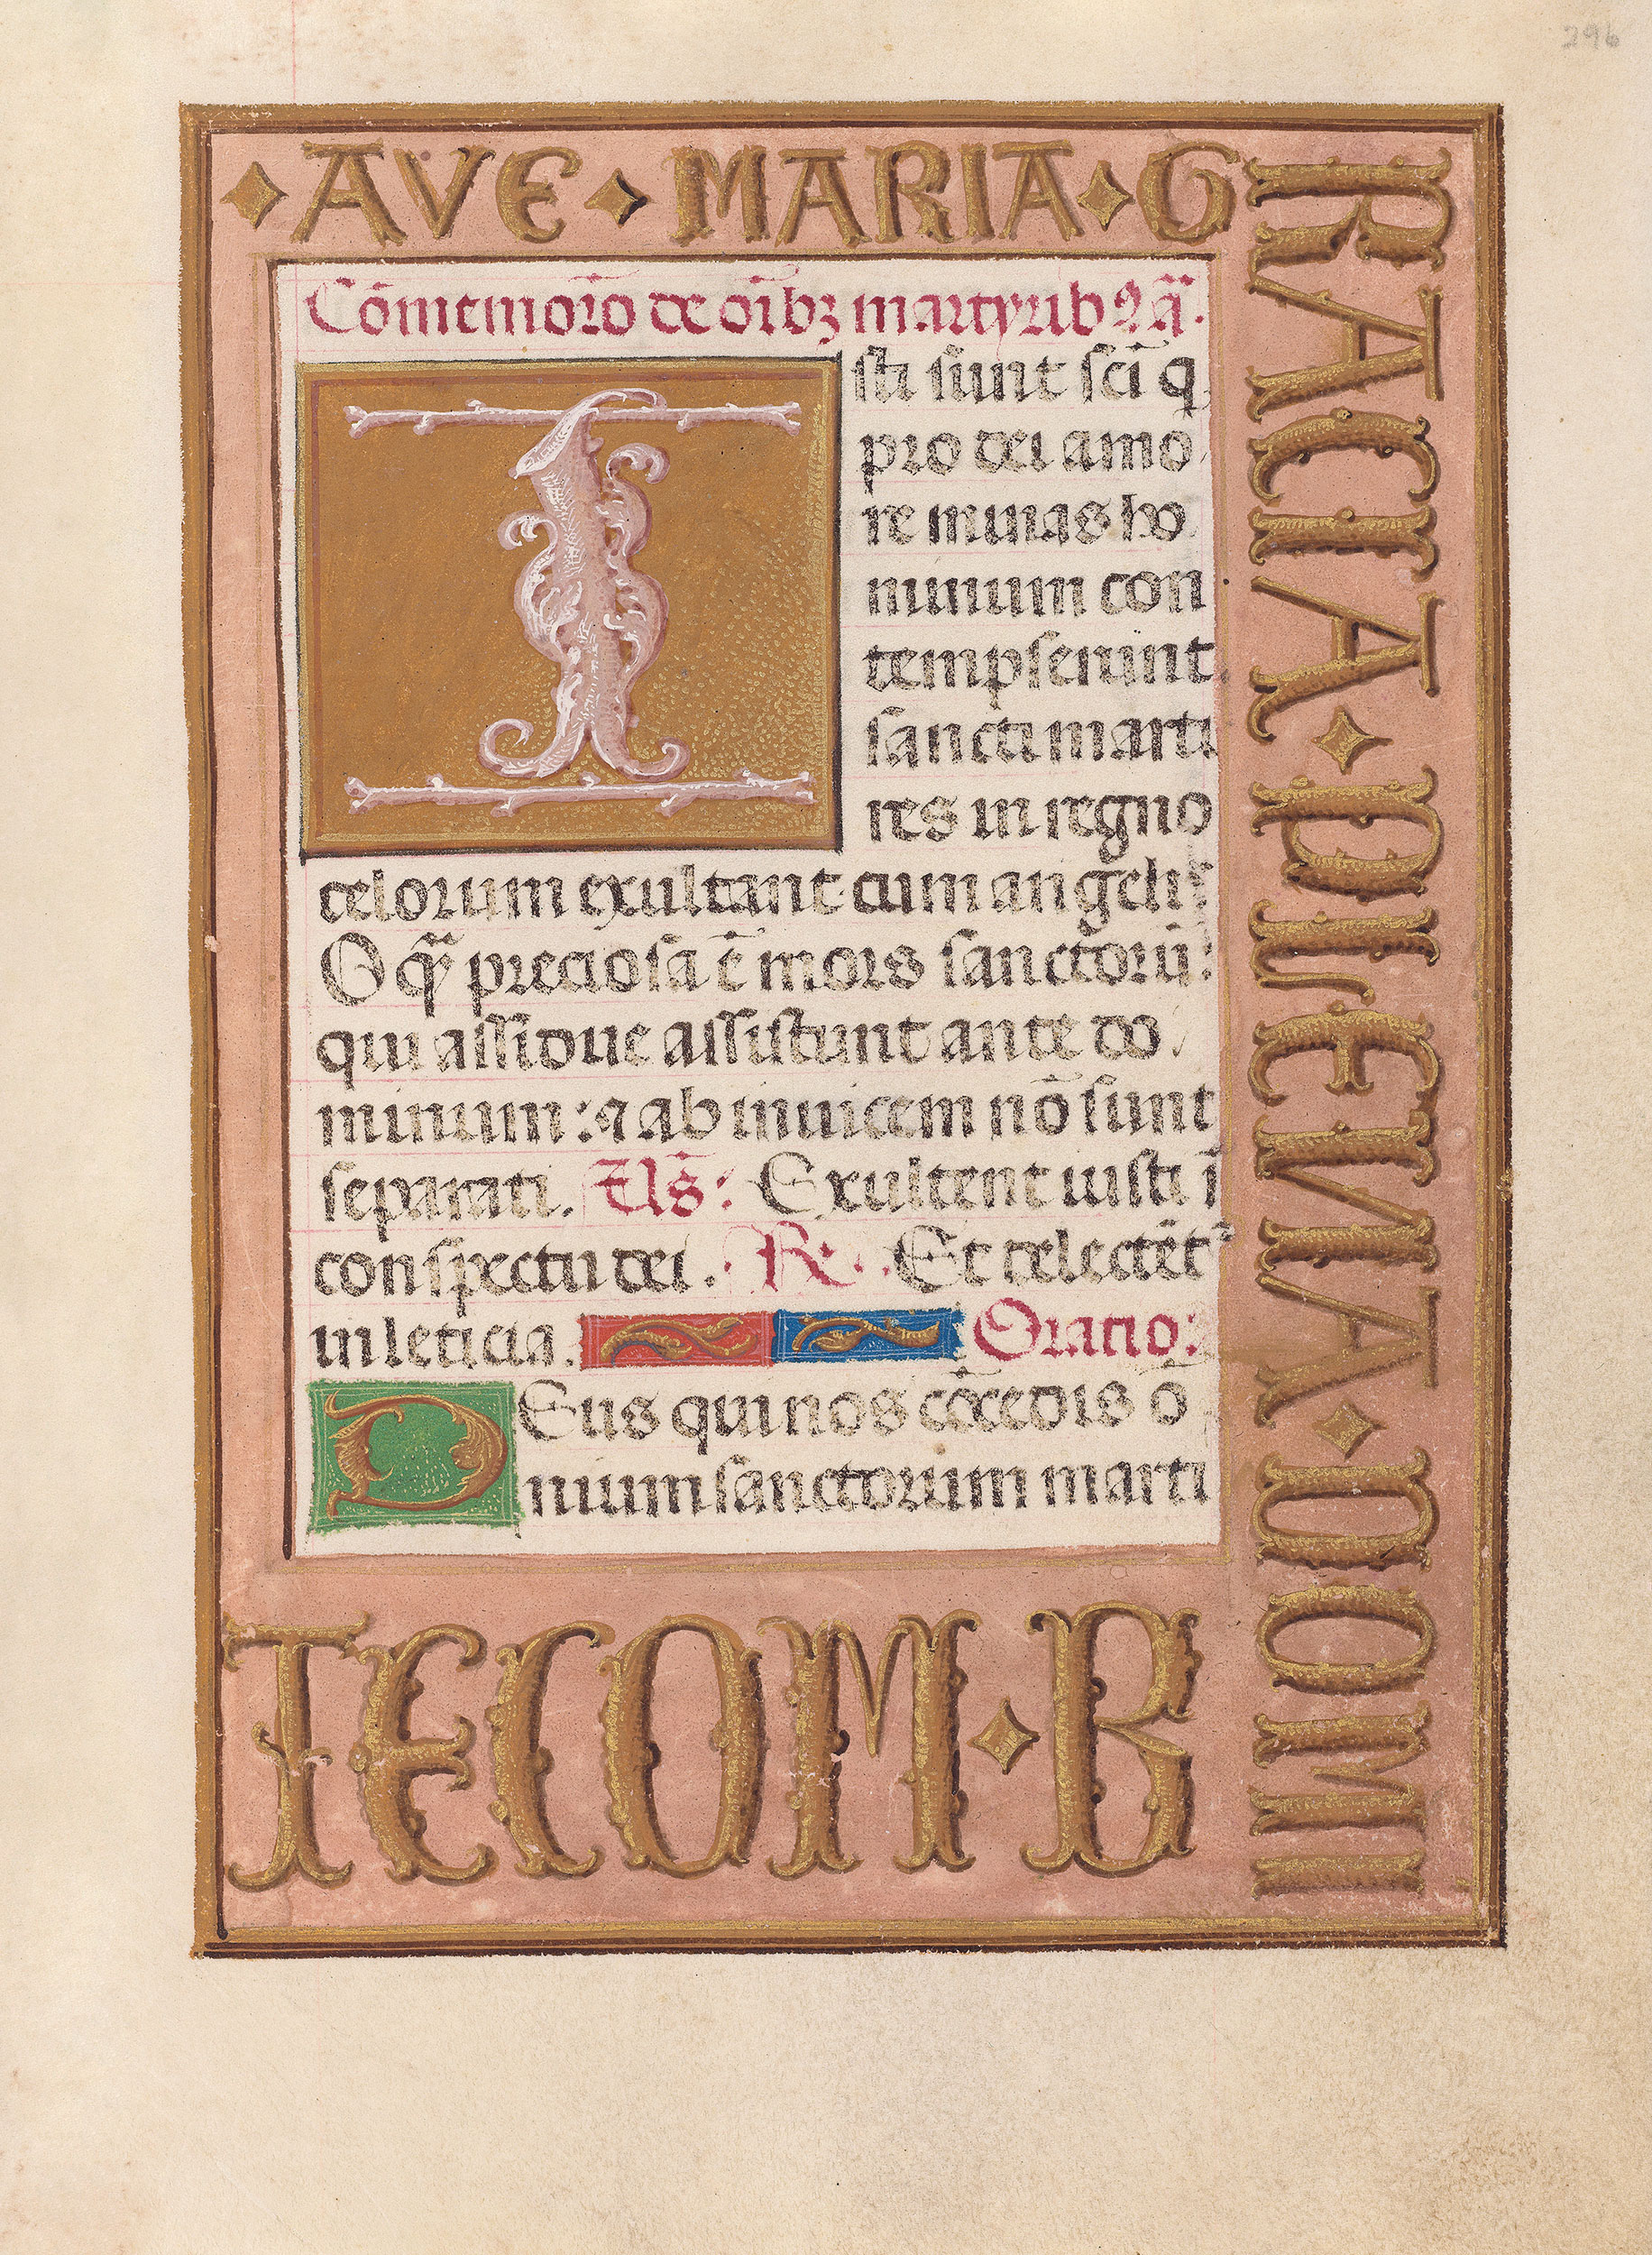 296
AVE MARIA G
RACIA PLENA DOMI
TECOM B
Cōmemorō de oībꝫ martyribꝰ añ.
Isti sunt scī q̇
pro dei amo
re minas ho
minum con
tempserunt
sancti marti
res in regno
celorum exultant cum angelis
O qͣ preciosa ē mors sanctorū:
qui assidue assistunt ante do
minum: ⁊ ab inuicem nō sunt
separati. Vs̄: Exultent iusti ī
conspectu dei. R. Et delectēt᷑
in leticia. Oratio:
DEus qui nos cōcedis ō
nium sanctorum marti